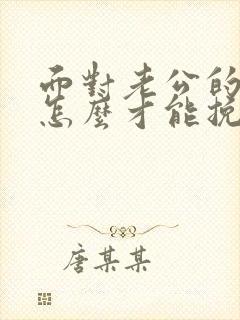 而對老公的
怎麼才能挽
唐某某